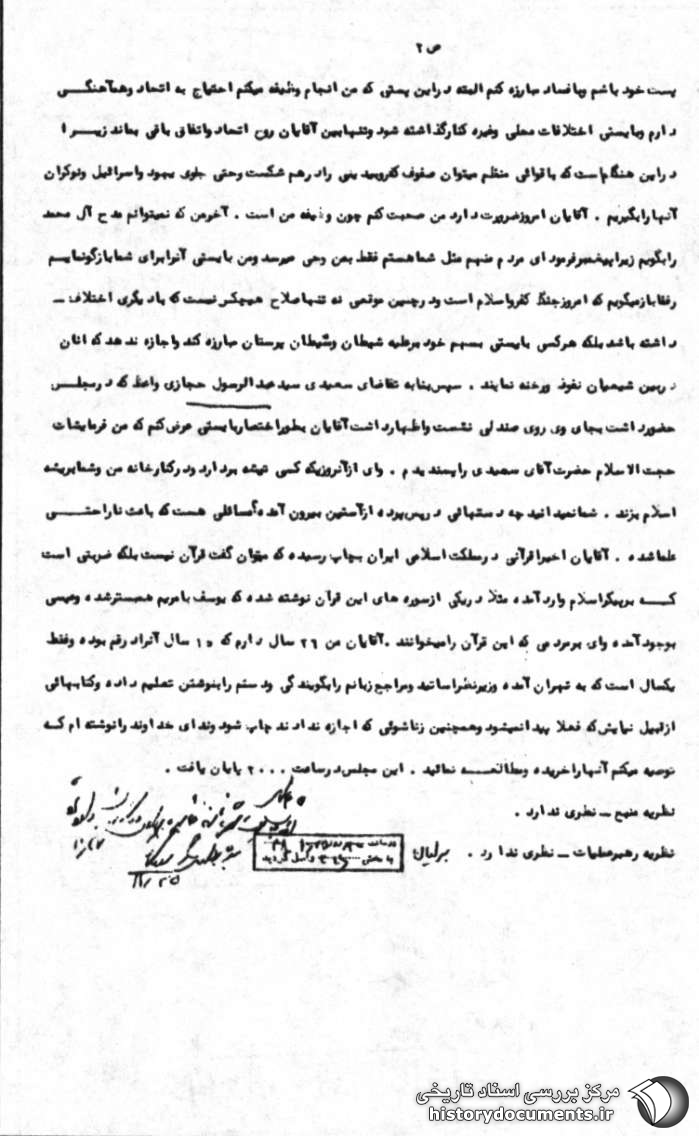 ص ۲
پست خود باشم وبافساد مبارزه کنم البته دراین پستی که من انجام وظیفه میکنم احتیاج به اتحاد وهمآهنگی
دارم وبایستی اختلافات محلی وغیره کنارگذاشته شود وتنهابین آقایان روح اتحاد واتفاق باقی بماند زیرا
دراین هنگام است که باقوائی منظم میتوان صفوف کفروبیدینی رادرهم شکست وحتی جلوی یهود واسرائیل ونوکران
آنهارابگیریم . آقایان امروزضرورت دارد من صحبت کنم چون وظیفه من است . آخرمن که نمیتوانم مدح آل محمد
رابگویم زیراپیغمبرفرمود ای مردم منهم مثل شماهستم فقط بمن وحی میرسد ومن بایستی آنرابرای شمابازگونمایم
رفقابازمیگویم که امروزجنگ کفرواسلام است ودرچنین موقعی نه تنهاصلاح هیچکس نیست که بادیگری اختلاف -
داشته باشد بلکه هرکس بایستی بسهم خود برعلیه شیطان وشیطان پرستان مبارزه کند واجازه ندهد که آنان
دربین شیعیان نفوذ ورخنه نمایند . سپس بنابه تقاضای سعیدی سیدعبدالرسول حجازی واعظ که درمجلس
حضورداشت بجای وی روی صندلی نشست واظهارداشت آقایان بطوراختصاربایستی عرض کنم که من فرمایشات
حجت الاسلام حضرت آقای سعیدی راپسندیدم . وای ازآنروزیکه کسی تیشه بردارد ودرکنارخانه من وشمابریشه
اسلام بزند . شمانمیدانید چه دستهائی درپس پرده ازآستین بیرون آمده اًمسائلی هست که باعث ناراحتی
علماشده . آقایان اخیراقرآنی درمملکت اسلامی ایران بچاپ رسیده که میتوان گفت قرآن نیست بلکه ضربتی است
که برپیکراسلام واردآمده مثلاً دریکی ازسوره های این قرآن نوشته شده که یوسف بامریم همبسترشده وعیسی
بوجودآمده وای برمردمی که این قرآن رامیخوانند .آقایان من ۲۶ سال دارم که ۱۵ سال آنرادرقم بوده وفقط
یکسال است که به تهران آمده وزیرنظراساتید ومراجع زبانم رابگویندگی ودستم رابنوشتن تعلیم داده وکتابهائی
ازقبیل نمایش که فعلا پیدانمیشود وهمچنین زناشوئی که اجازه ندادند چاپ شود وندای خداوند رانوشته ام که
توصیه میکنم آنهاراخریده ومطالعه نمائید . این مجلس درساعت ۲۰۰۰ پایان یافت .
نظریه منبع - نظری ندارد .
نظریه رهبرعملیات - نظری ندارد .
مرکز بررسی اسناد تاریخی
historydocuments.ir